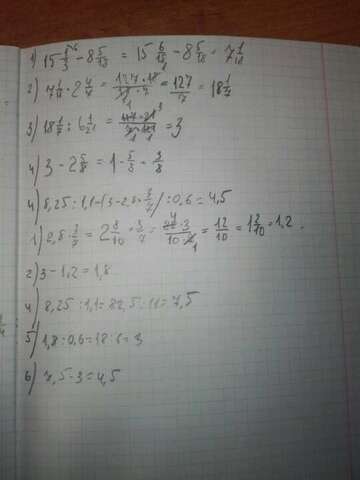 1) 15 1/3 - 8 5/18 = 15 6/18 - 8 5/18 = 7 1/18
2) 7 1/18 · 2 4/7 = 127·18/18·7 = 127/7 = 18 1/7
3) 18 1/7 : 6 1/21 = 127·21/7·127 = 3
4) 3 - 2 5/8 = 1 - 5/8 = 3/8
4) 8,25 : 1,1 - (3 - 2,8 · 3/7) : 0,6 = 4,5
1) 2,8 · 3/7 = 2 8/10 · 3/7 = 28·3/10·7 = 12/10 = 1 2/10 = 1,2.
2) 3 - 1,2 = 1,8
4) 8,25 : 1,1 = 82,5 : 11 = 7,5
5) 1,8 : 0,6 = 18 : 6 = 3
6) 7,5 - 3 = 4,5